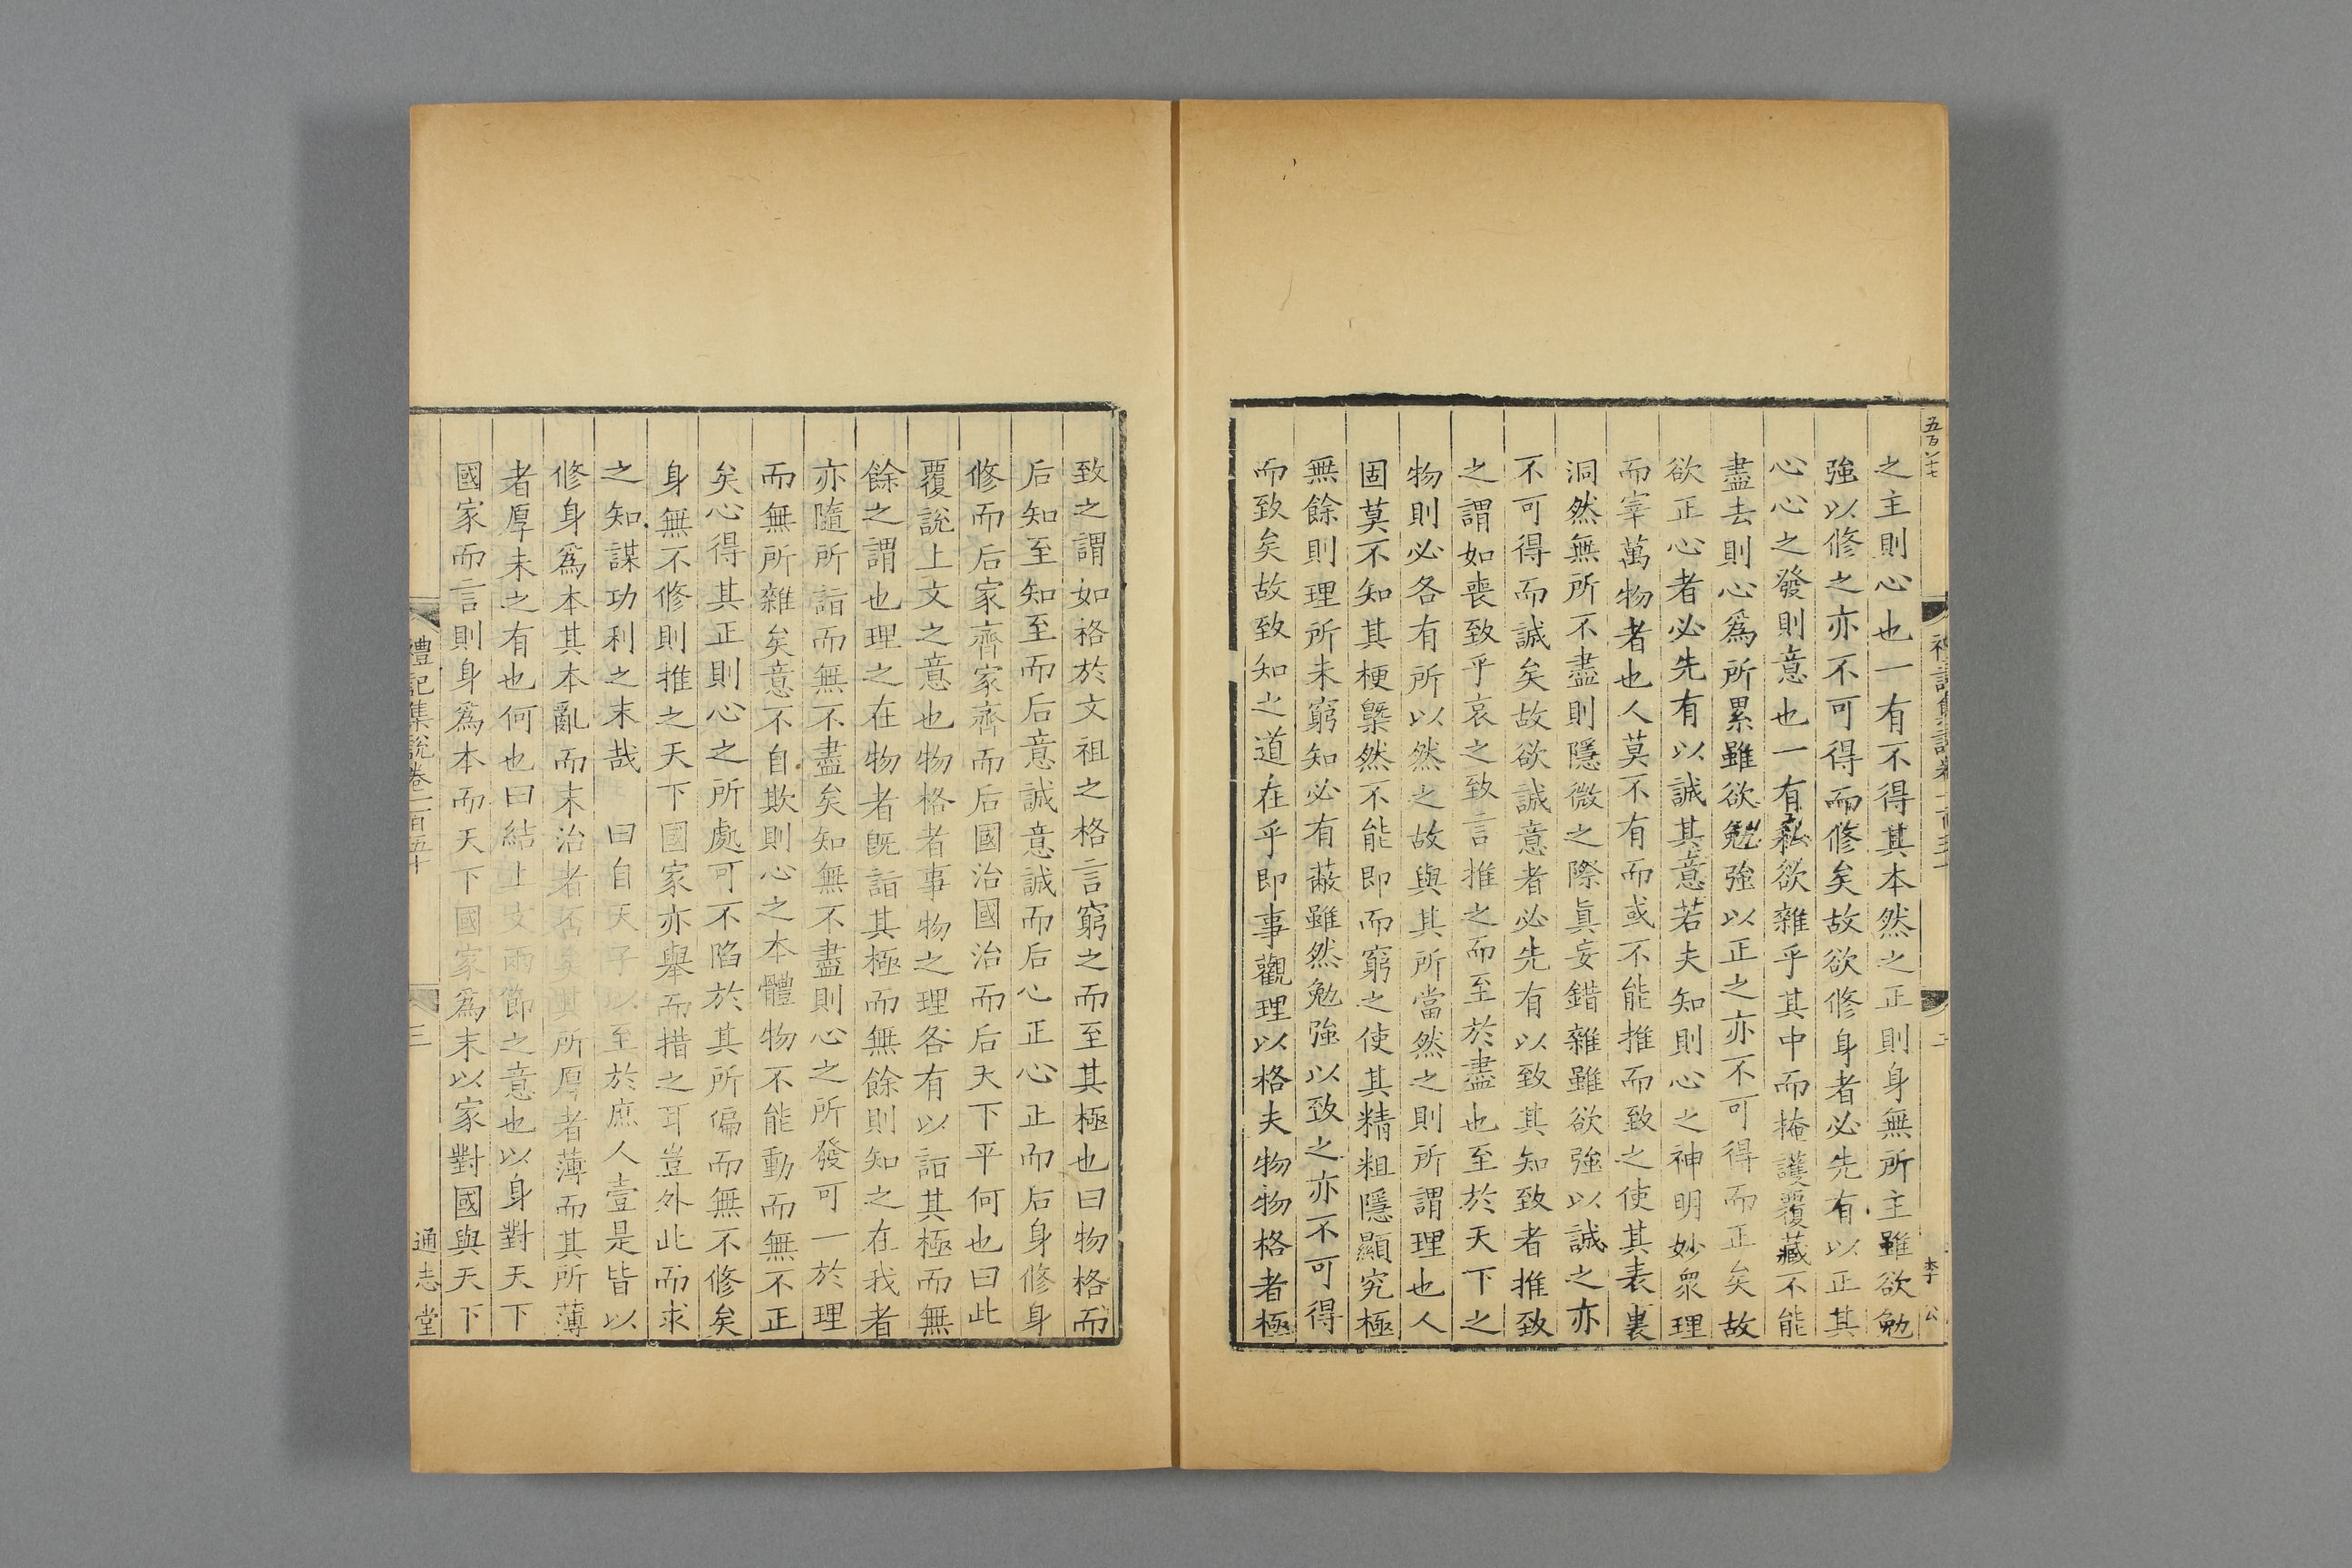 五百
之主則心也一有不得其本然之正則身無所主雖欲勉
強以修之亦不可得而修矣故欲修身者必先有以正其
心心之發則意也一有私欲雜乎其中而掩護覆藏不能
盡去則心爲所累雖欲勉強以正之亦不可得而正矣故
欲正心者必先有以誠其意若夫知則心之神明妙衆理
而宰萬物者也人莫不有而或不能推而致之使其表裏
洞然無所不盡則隱微之際眞妄錯雜雖欲強以誠之亦
不可得而誠矣故欲誠意者必先有以致其知致者推致
之謂如喪致乎哀之致言推之而至於盡也至於天下之
物則必各有所以然之故與其所當然之則所謂理也人
固莫不知其梗槩然不能即而窮之使其精粗隱顯究極
無餘則理所未窮知必有蔽雖然勉強以致之亦不可得
而致矣故致知之道在乎即事觀理以格夫物物格者極
致之謂如格於文祖之格言窮之而至其極也曰物格而
后知至知至而后意誠意誠而后心正心正而后身修身
修而后家齊家齊而后國治國治而后天下平何也曰此
覆說上文之意也物格者事物之理各有以詣其極而無
餘之謂也理之在物者旣詣其極而無餘則知之在我者
亦隨所詣而無不盡矣知無不盡則心之所發可一於理
而無所雜矣意不自欺則心之本體物不能動而無不正
矣心得其正則心之所處可不陷於其所偏而無不修矣
身無不修則推之天下國家亦舉而措之耳豈外此而求
之知謀功利之末哉　曰自天子以至於庶人壹是皆以
修身爲本其本亂而末治者否矣其所厚者薄而其所薄
者厚未之有也何也曰結上文兩節之意也以身對天下
國家而言則身爲本而天下國家爲末以家對國與天下
禮記集說卷一百五十
三
通志堂